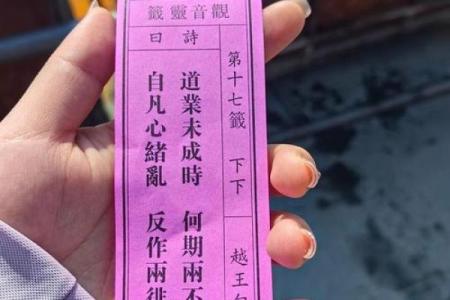 觀音靈籤
第十七籤 下下 越王
詩曰
道業未成時 何期兩不
自凡心緒亂 反作兩徘